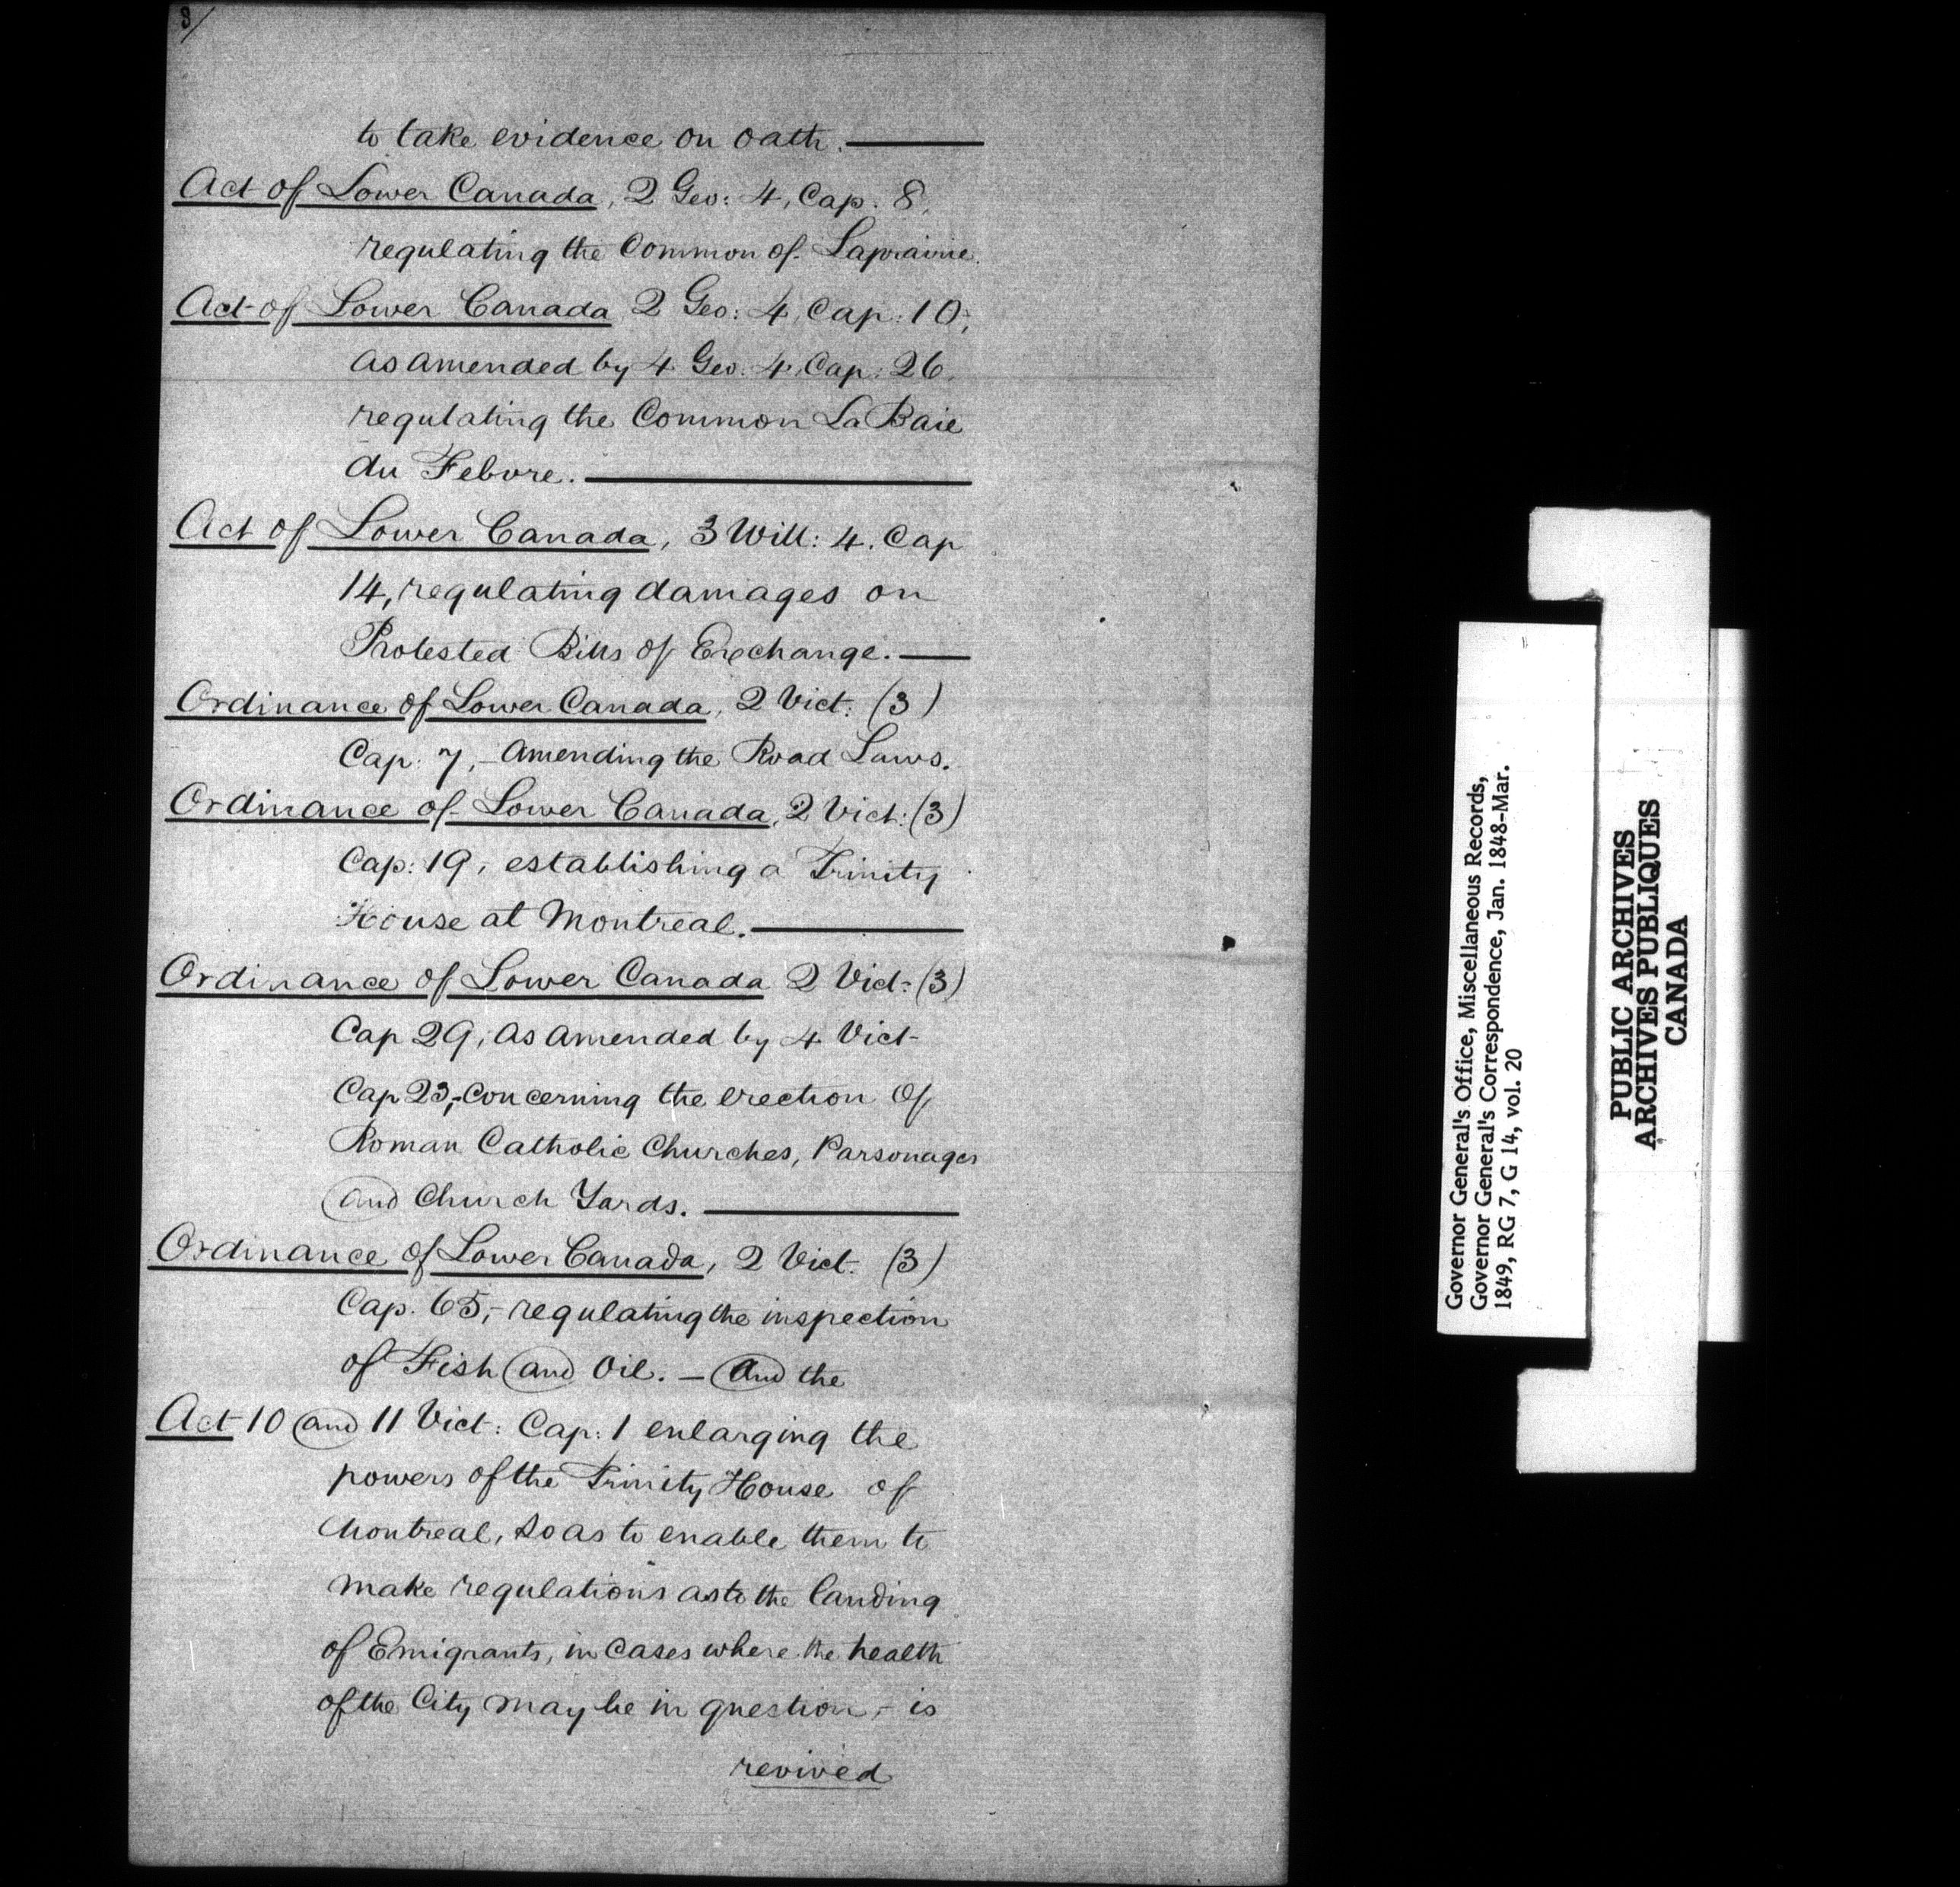 3/
to take evidence on oath.
Act of Lower Canada, 2 Geo: 4, Cap. 8,
regulating the Common of Laprairie.
Act of Lower Canada 2 Geo: 4, Cap: 10,
as amended by 4 Geo: 4, Cap: 26,
regulating the Common La Baie
du Febvre.
Act of Lower Canada, 3 Will: 4. Cap
14, regulating damages on
Protested Bills of Exchange.
Ordinance of Lower Canada, 2 Vict: (3)
Cap: 7, - amending the Road Laws.
Ordinance of Lower Canada, 2 Vict: (3)
Cap: 19, establishing a Trinity
House at Montreal.
Ordinance of Lower Canada 2 Vict: (3)
Cap 29, as amended by 4 Vict-
Cap 23,- concerning the erection of
Roman Catholic Churches, Parsonages
and Church Yards.
Ordinance of Lower Canada, 2 Vict. (3)
Cap. 65,- regulating the inspection
of Fish and Oil. - And the
Act 10 and 11 Vict: Cap: 1 enlarging the
powers of the Trinity House of
Montreal, so as to enable them to
make regulations as to the landing
of Emigrants, in cases where the health
of the City may be in question,- is
revived
Governor General's Office, Miscellaneous Records,
Governor General's Correspondence, Jan. 1848-Mar.
1849, RG 7, G 14, vol. 20
PUBLIC ARCHIVES
ARCHIVES PUBLIQUES
CANADA